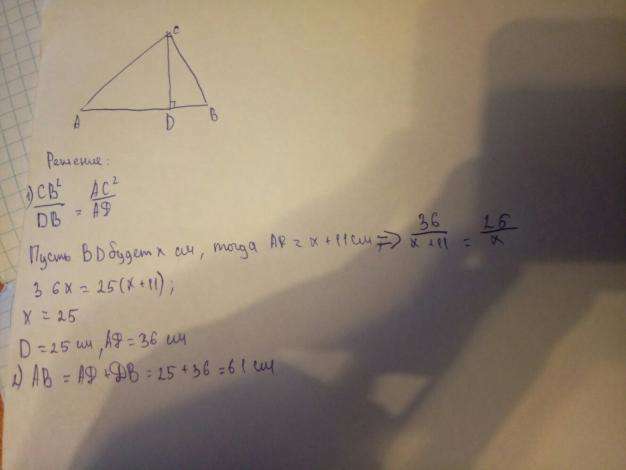 C
A
D
B
Решение:
1) CB²/DB = AC²/AD
Пусть BD будет x см, тогда AD = x + 11 см => 36/(x + 11) = 25/x
36x = 25(x + 11);
x = 25
D = 25 см, AD = 36 см
2) AB = AD + DB = 25 + 36 = 61 см